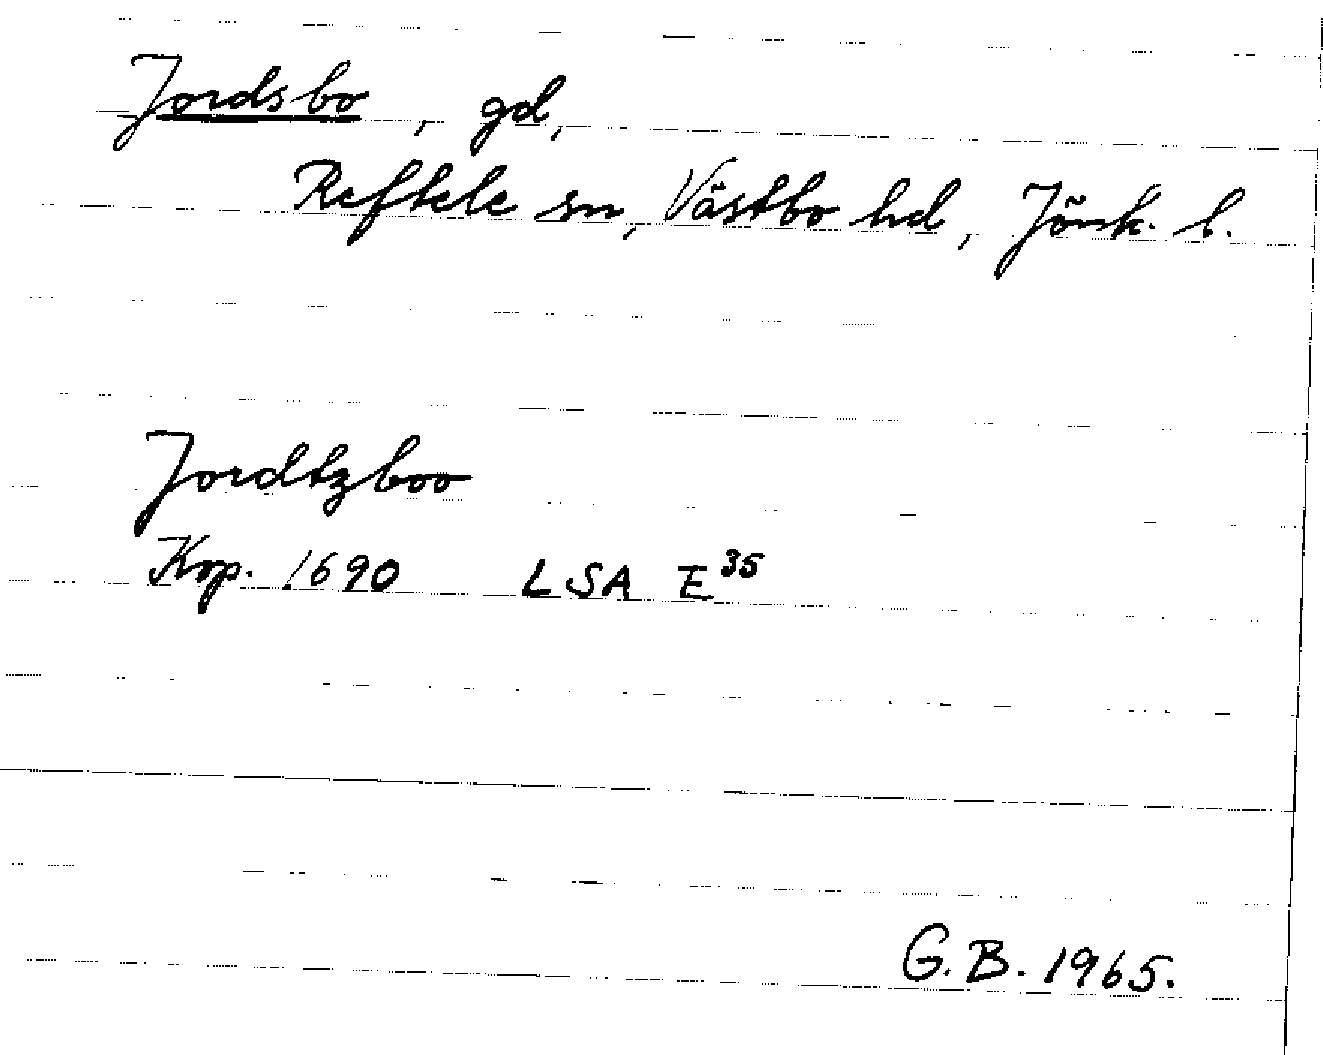 Jordsbo, gd,
Reftele sn, Västbo hd, Jönk. l.
Jordtzboo
Kop. 1690 LSA E³⁵
G.B. 1965.